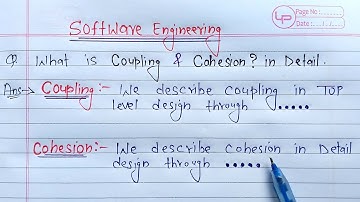 YP
Page No :
Date : / /
Software Engineering
Q. What is Coupling & Cohesion? in Detail.
Ans→ Coupling:- We describe coupling in TOP
level design through .....
Cohesion:- We describe cohesion in Detail
design through .....